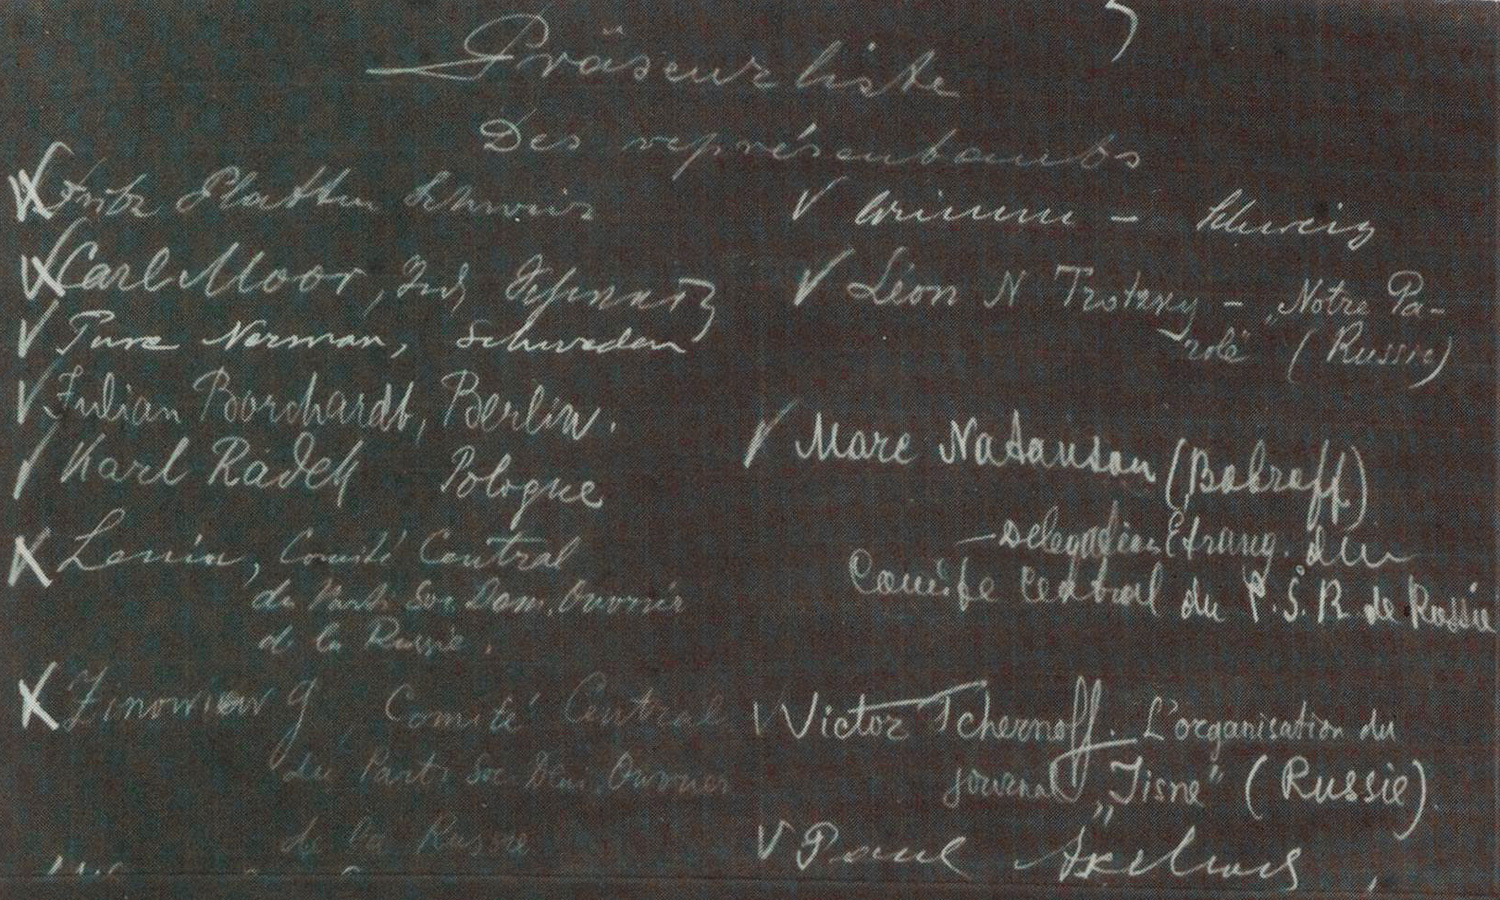 Präsenzliste
Des représentants
Fritz Platten Schweiz
Carl Moor,
Ture Nerman, Schweden
Julian Borchardt, Berlin.
Karl Radek Pologne
Lenin, Comité Central
du Parti Soc. Dem. Ouvrier
de la Russie.
Zinowiew G Comité Central
du Parti Soc. Dem. Ouvrier
de la Russie
Grimm – Schweiz
Léon N Trotzky – „Notre Pa-
role" (Russie)
Marc Natanson (Bobroff)
– Delegation Etrang. du
Comité Central du P.S.R. de Russie
Victor Tchernoff. L'organisation du
journal „Jisne" (Russie).
Paul Axelrod,